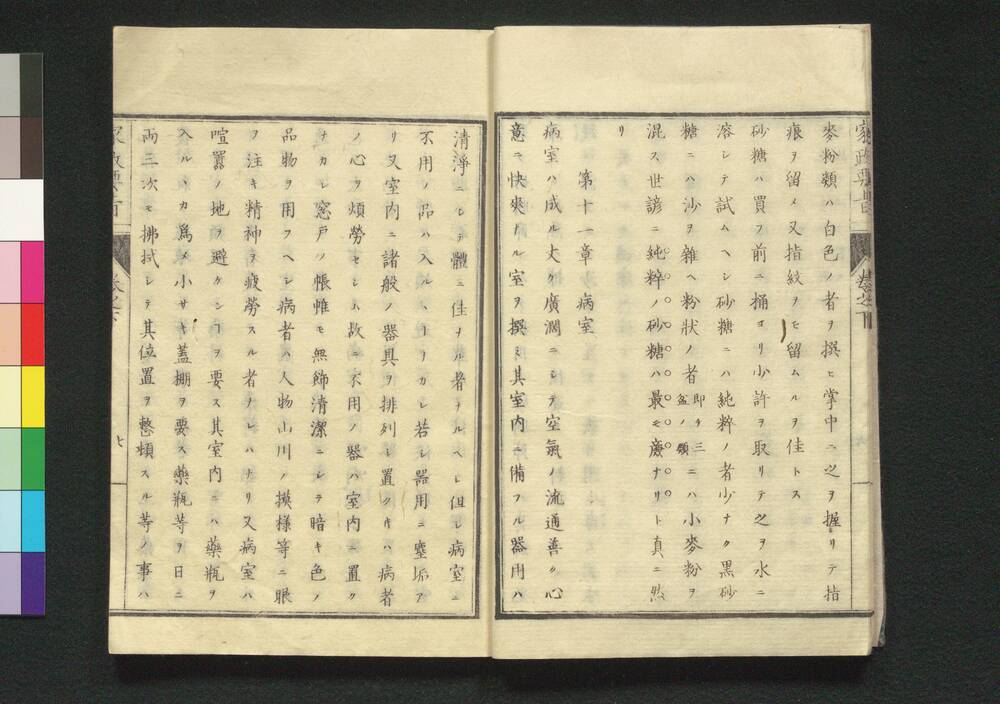 麥粉類ハ白色ノ者ヲ撰ヒ掌中ニ之ヲ握リテ指
痕ヲ留メ又指紋ヲモ留ムルヲ佳トス
砂糖ハ買フ前ニ桶ヨリ少許ヲ取リテ之ヲ水ニ
溶シテ試ムヘシ砂糖ニハ純粹ノ者少ナク黒砂
糖ニハ沙ヲ雜ヘ粉狀ノ者即チ三盆ノ類ニハ小麥粉ヲ
混ス世諺ニ純粹ノ砂糖ハ最モ廉ナリト真ニ然
リ
第十一章 病室
病室ハ成ル丈ケ廣濶ニシテ室氣ノ流通善ク心
意ニ快爽ナル室ヲ撰ミ其室内ニ備フル器用ハ
清淨ニシテ體ニ佳ナル者ナルヘシ但シ病室ニ
不用ノ品ハ入ルヘコナカレ若シ器用ニ塵垢ア
リ又室内ニ諸般ノ器具ヲ排列シ置クキハ病者
ノ心ヲ煩勞セシム故ニ不用ノ器ハ室内ニ置ク
ナカレ窓戸ノ帳帷モ無飾清潔ニシテ暗キ色ノ
品物ヲ用フヘシ病者ハ人物山川ノ摸様等ニ眼
ヲ注キ精神ヲ疲勞スル者ナレハナリ又病室ハ
喧囂ノ地ヲ避ケンコヲ要ス其室内ニハ藥瓶ヲ
入ルヽカ爲メ小サキ蓋棚ヲ要ス藥瓶等ヲ日ニ
両三次モ拂拭シテ其位置ヲ整頓スル等ノ事ハ
家政要旨 卷之下 七